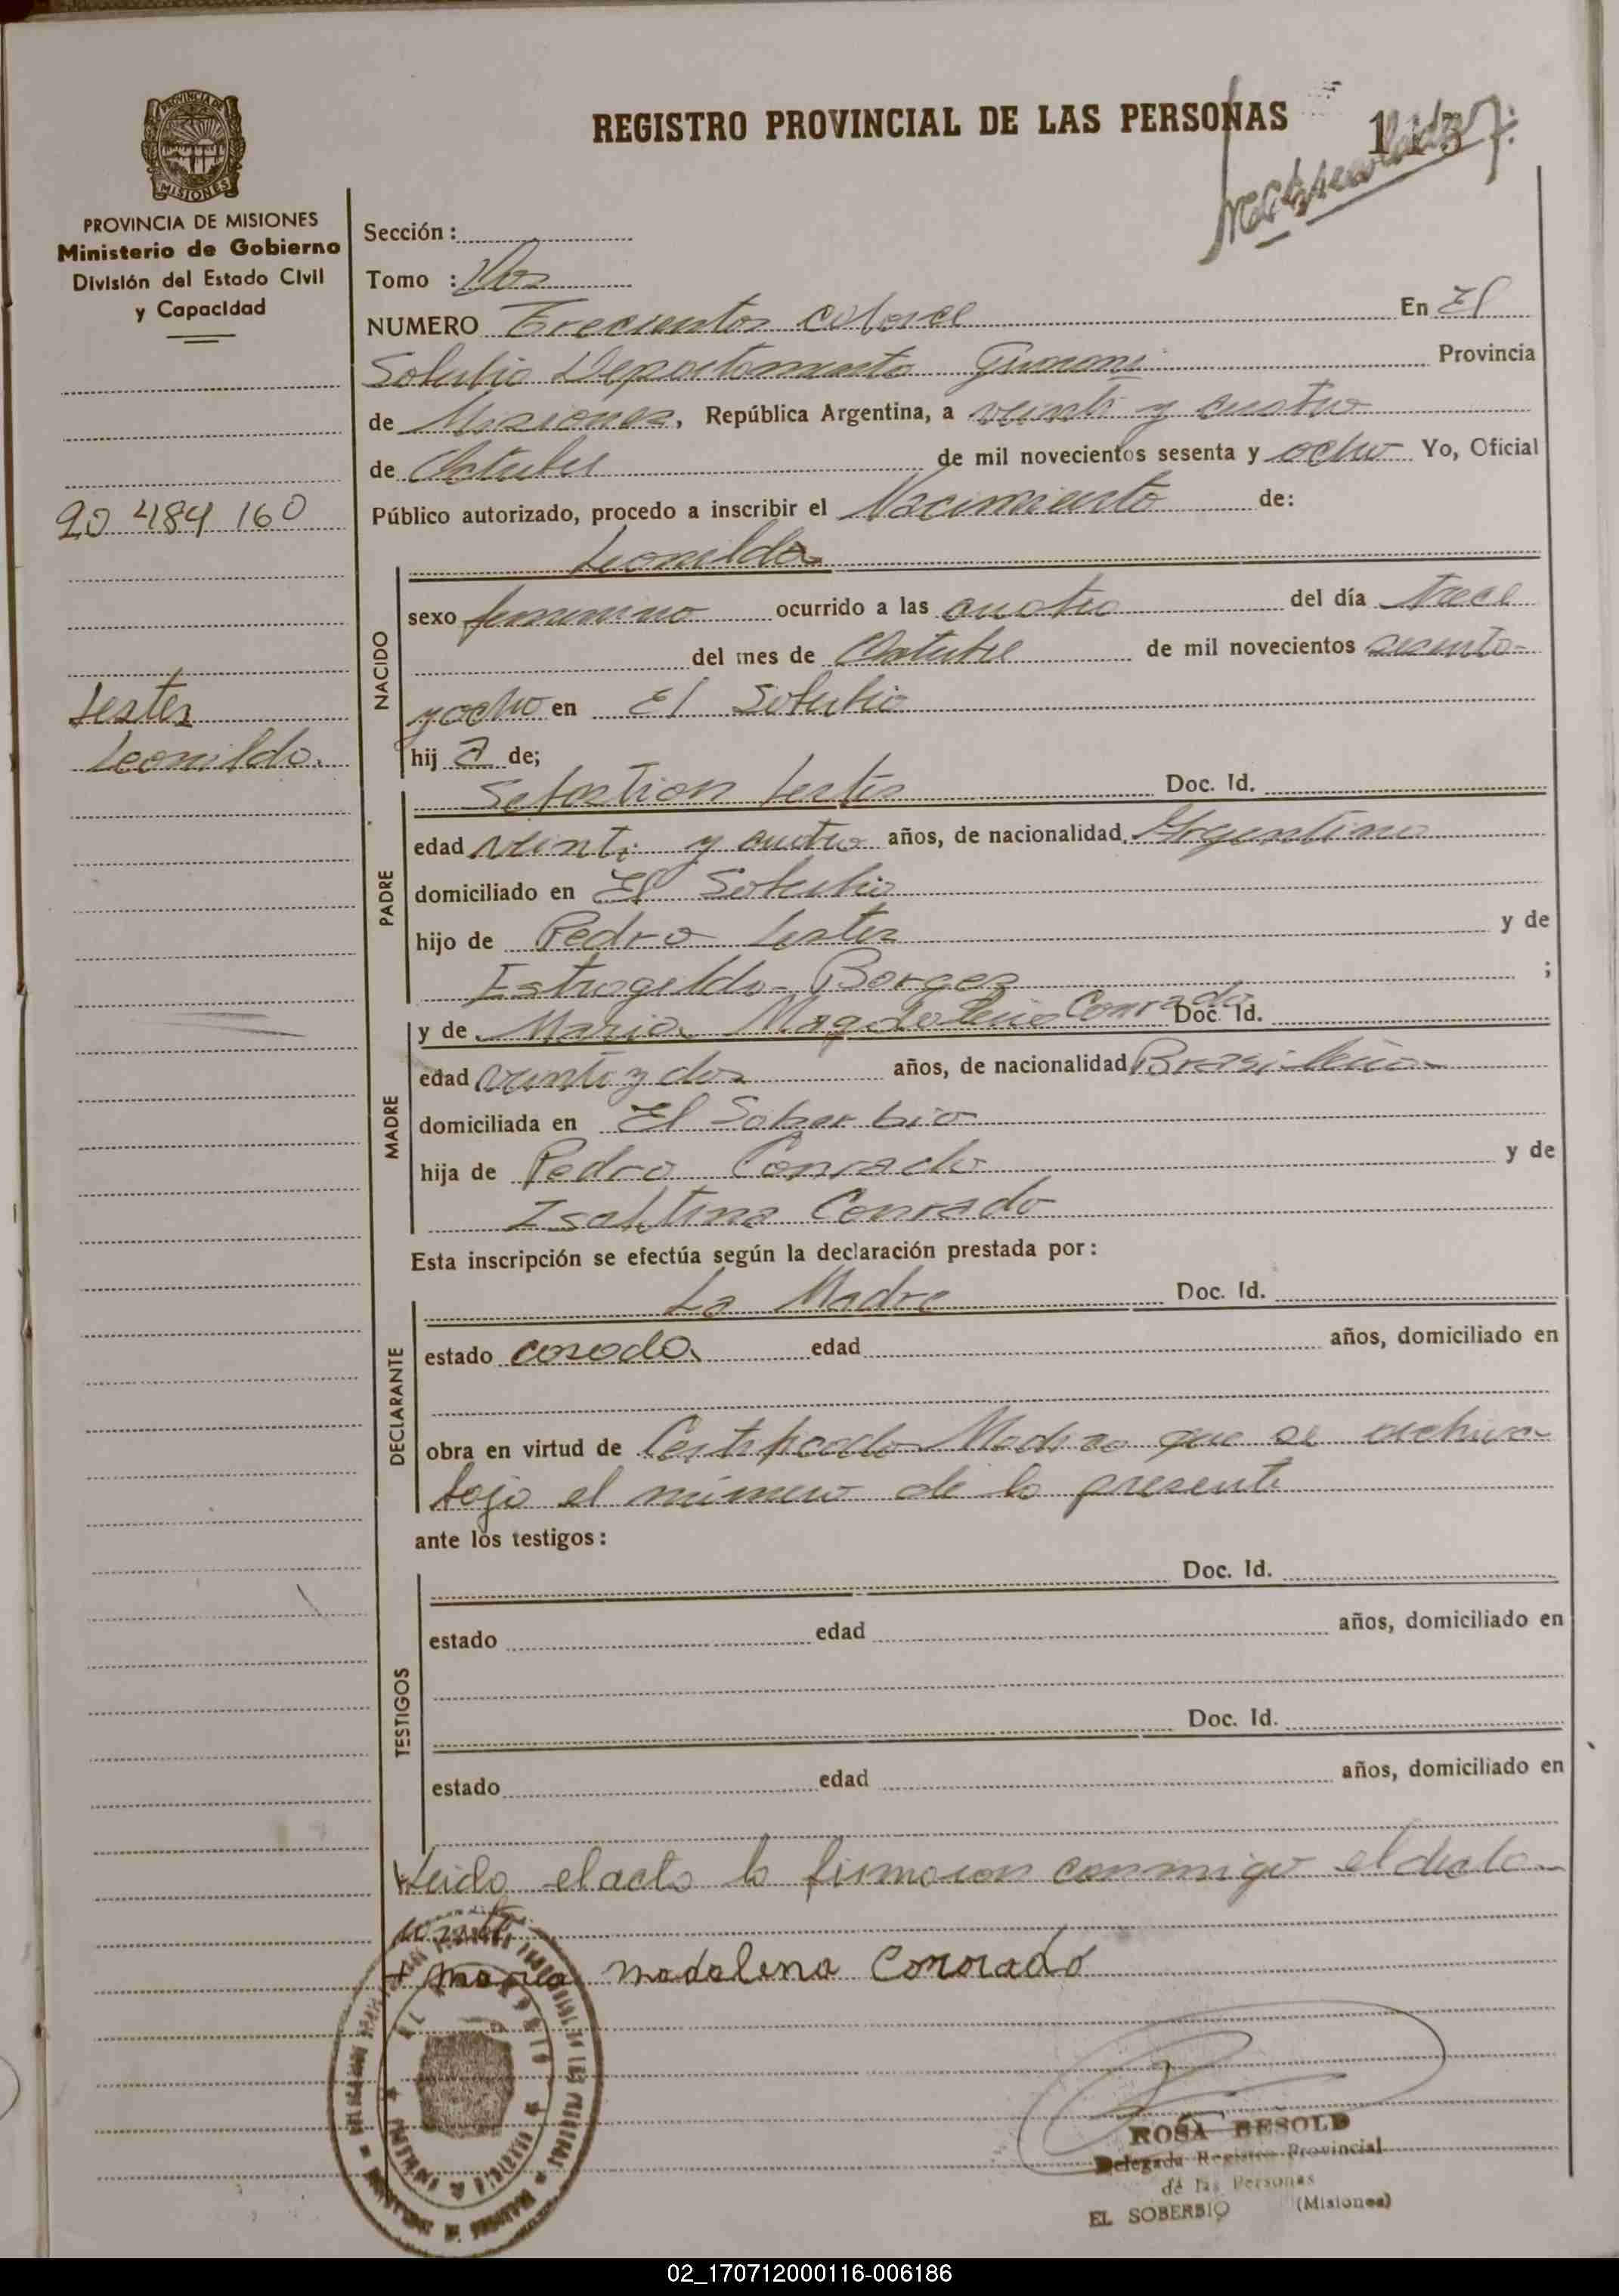 REGISTRO PROVINCIAL DE LAS PERSONAS
113
PROVINCIA DE
MISIONES
PROVINCIA DE MISIONES
Ministerio de Gobierno
División del Estado Civil
y Capacidad
20 484 160
Lestes
Leonilda.
Sección :
Tomo : Dos
NUMERO Trecientos catorce En El
Soberbio Departamento Guarani Provincia
de Misiones, República Argentina, a veinti y cuatro
de Octubre de mil novecientos sesenta y ocho Yo, Oficial
Público autorizado, procedo a inscribir el Nacimiento de:
NACIDO
Leonilda
sexo femenino ocurrido a las cuatro del día trece
del mes de Octubre de mil novecientos sesenta
y ocho en El Soberbio
hij a de;
PADRE
Sebastian Lestes Doc. Id.
edad veinti y cuatro años, de nacionalidad Argentina
domiciliado en El Soberbio
hijo de Pedro Lestes y de
Estrogilda Borges ;
MADRE
y de Maria Magdalena Conrado Doc. Id.
edad veinti y dos años, de nacionalidad Brasileña
domiciliada en El Soberbio
hija de Pedro Conrado y de
Isaltina Conrado
Esta inscripción se efectúa según la declaración prestada por:
DECLARANTE
La Madre Doc. Id.
estado casada edad años, domiciliado en
obra en virtud de Certificado Medico que se archiva
bajo el número de la presente
ante los testigos:
TESTIGOS
Doc. Id.
estado edad años, domiciliado en
Doc. Id.
estado edad años, domiciliado en
Leida el acta la firmaron conmigo el decla-
rante
Maria madalena Conrado
EL SOBERBIO
ROSA BESOLD
Delegada Registro Provincial
de las Personas
EL SOBERBIO (Misiones)
02_170712000116-006186